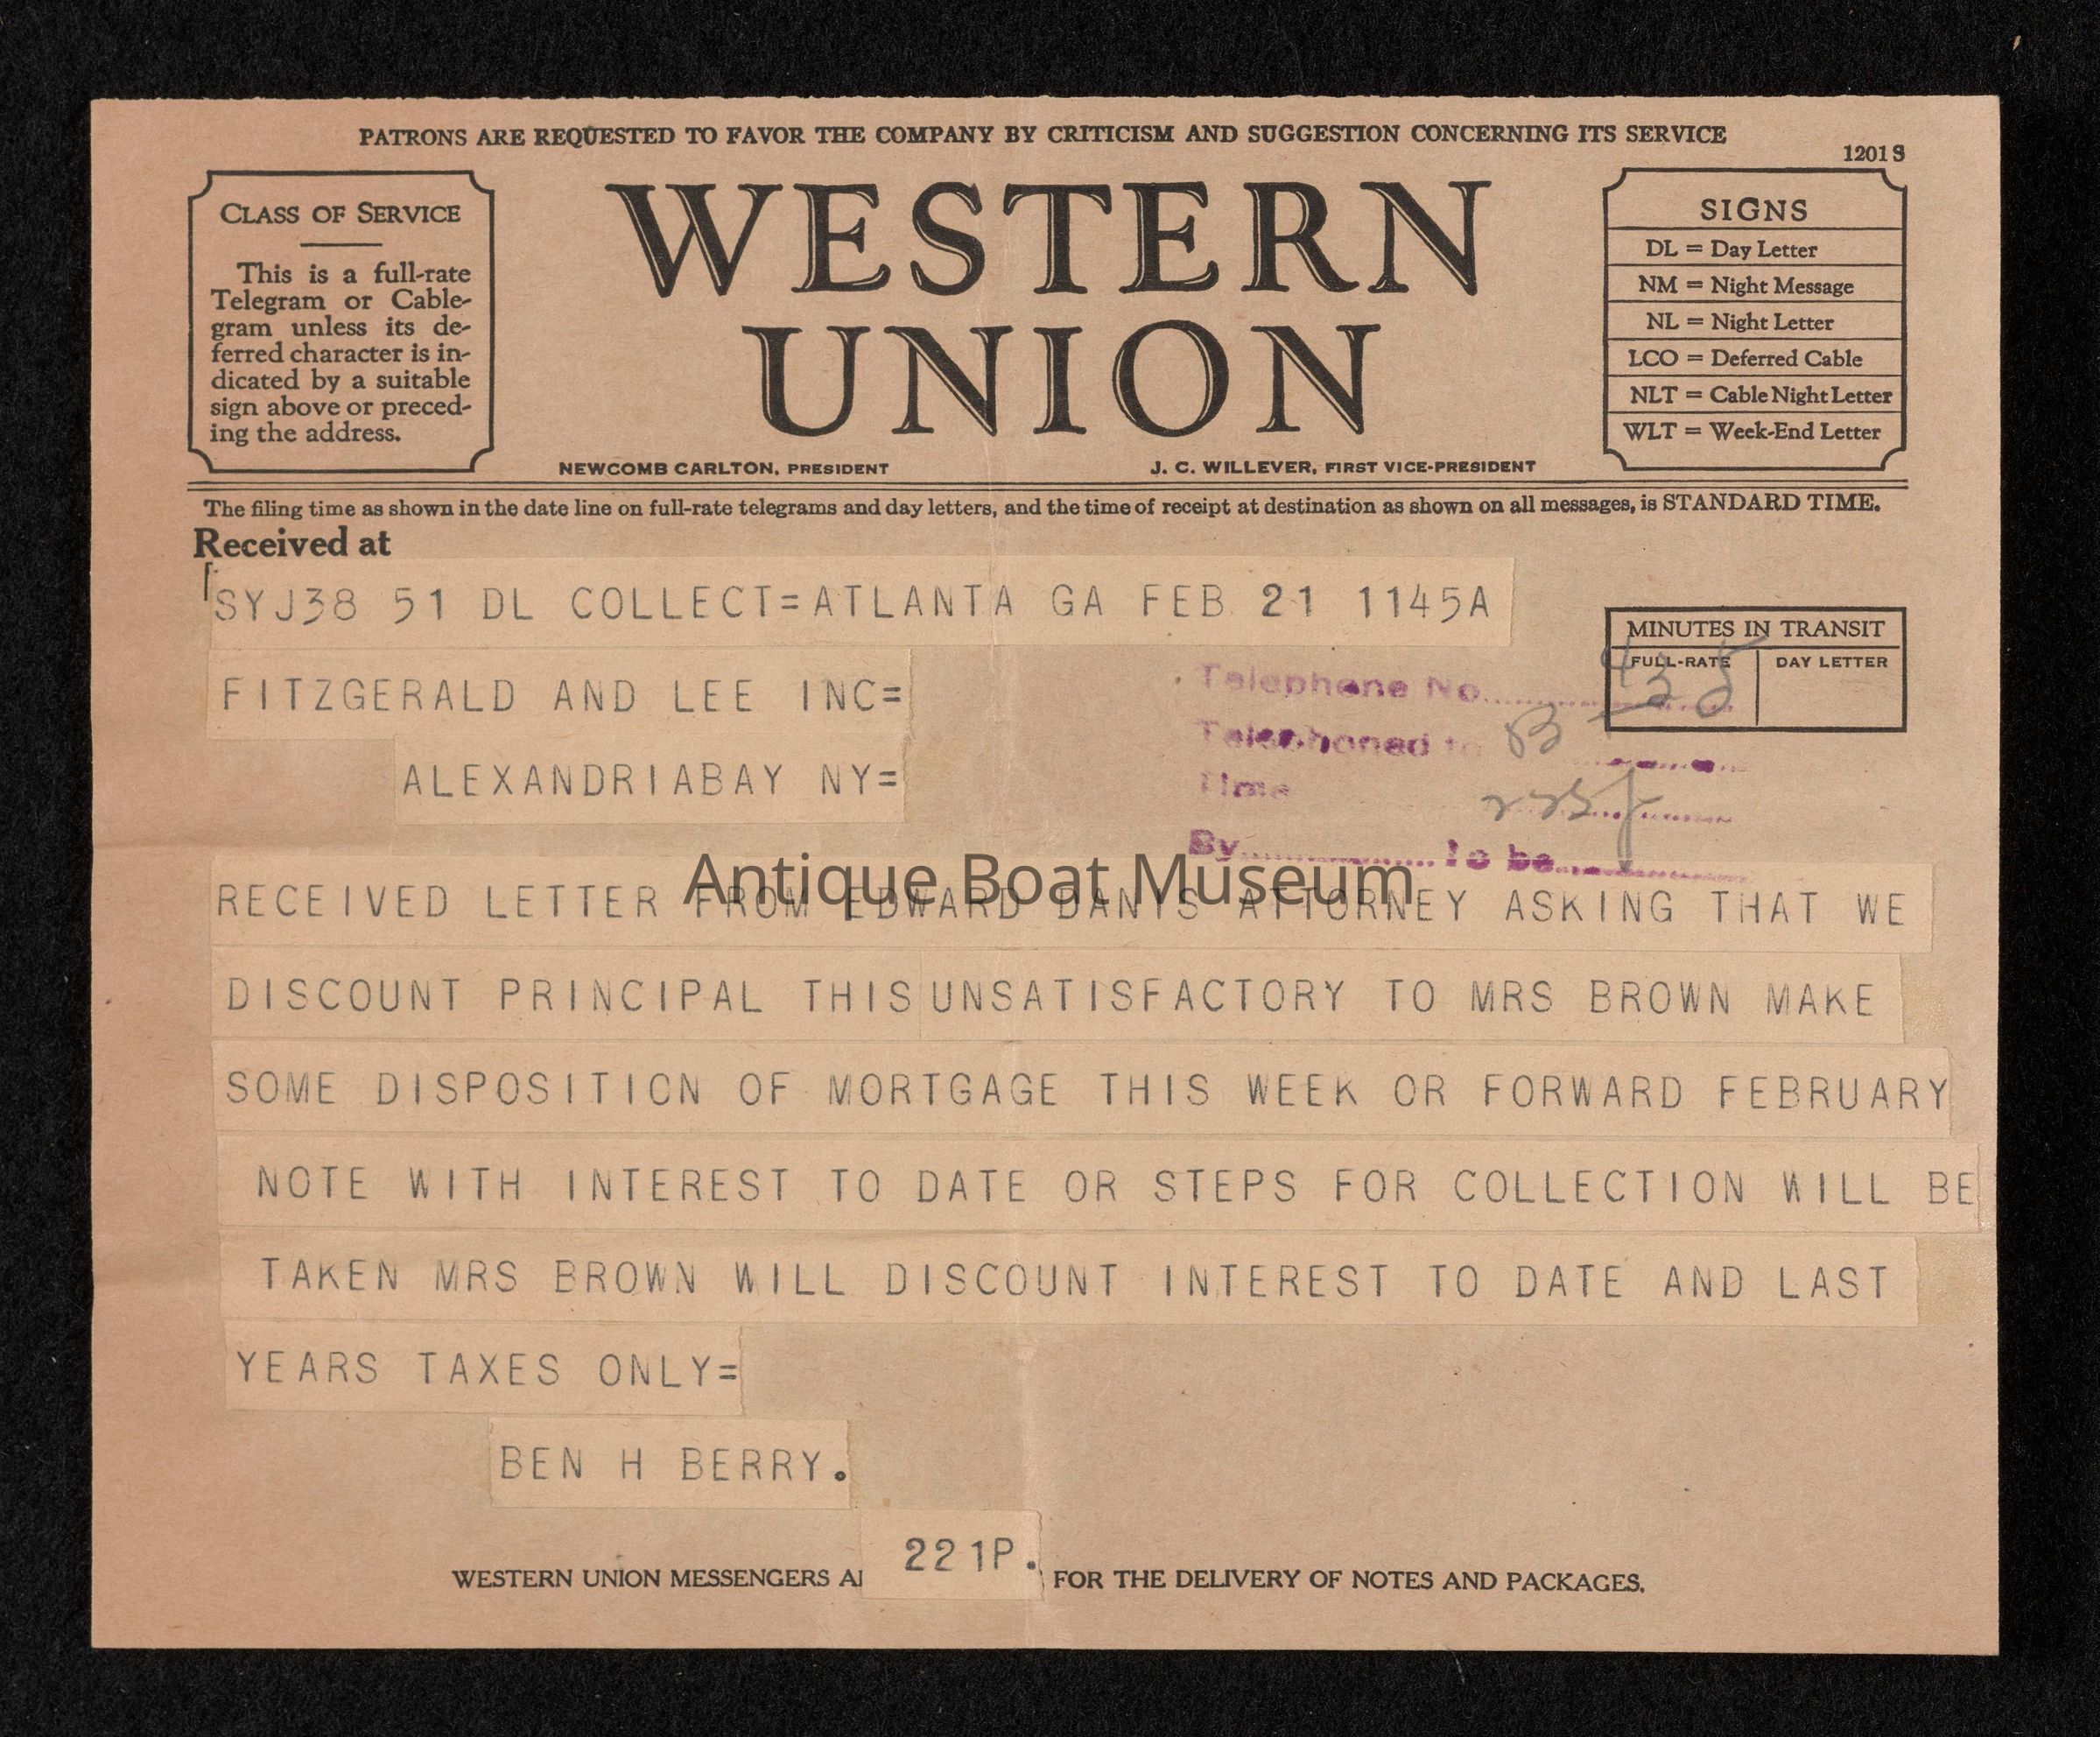 PATRONS ARE REQUESTED TO FAVOR THE COMPANY BY CRITICISM AND SUGGESTION CONCERNING ITS SERVICE
1201 S
CLASS OF SERVICE
This is a full-rate
Telegram or Cable-
gram unless its de-
ferred character is in-
dicated by a suitable
sign above or preced-
ing the address.
WESTERN
UNION
NEWCOMB CARLTON, PRESIDENT
J. C. WILLEVER, FIRST VICE-PRESIDENT
SIGNS
DL = Day Letter
NM = Night Message
NL = Night Letter
LCO = Deferred Cable
NLT = Cable Night Letter
WLT = Week-End Letter
The filing time as shown in the date line on full-rate telegrams and day letters, and the time of receipt at destination as shown on all messages, is STANDARD TIME.
Received at
SYJ38 51 DL COLLECT=ATLANTA GA FEB 21 1145A
MINUTES IN TRANSIT
FULL-RATE
DAY LETTER
FITZGERALD AND LEE INC=
ALEXANDRIABAY NY=
Telephone No.
Telephoned to
Time
By To be
Antique Boat Museum
RECEIVED LETTER FROM EDWARD DANIS ATTORNEY ASKING THAT WE
DISCOUNT PRINCIPAL THIS UNSATISFACTORY TO MRS BROWN MAKE
SOME DISPOSITION OF MORTGAGE THIS WEEK OR FORWARD FEBRUARY
NOTE WITH INTEREST TO DATE OR STEPS FOR COLLECTION WILL BE
TAKEN MRS BROWN WILL DISCOUNT INTEREST TO DATE AND LAST
YEARS TAXES ONLY=
BEN H BERRY.
221P.
WESTERN UNION MESSENGERS FOR THE DELIVERY OF NOTES AND PACKAGES.